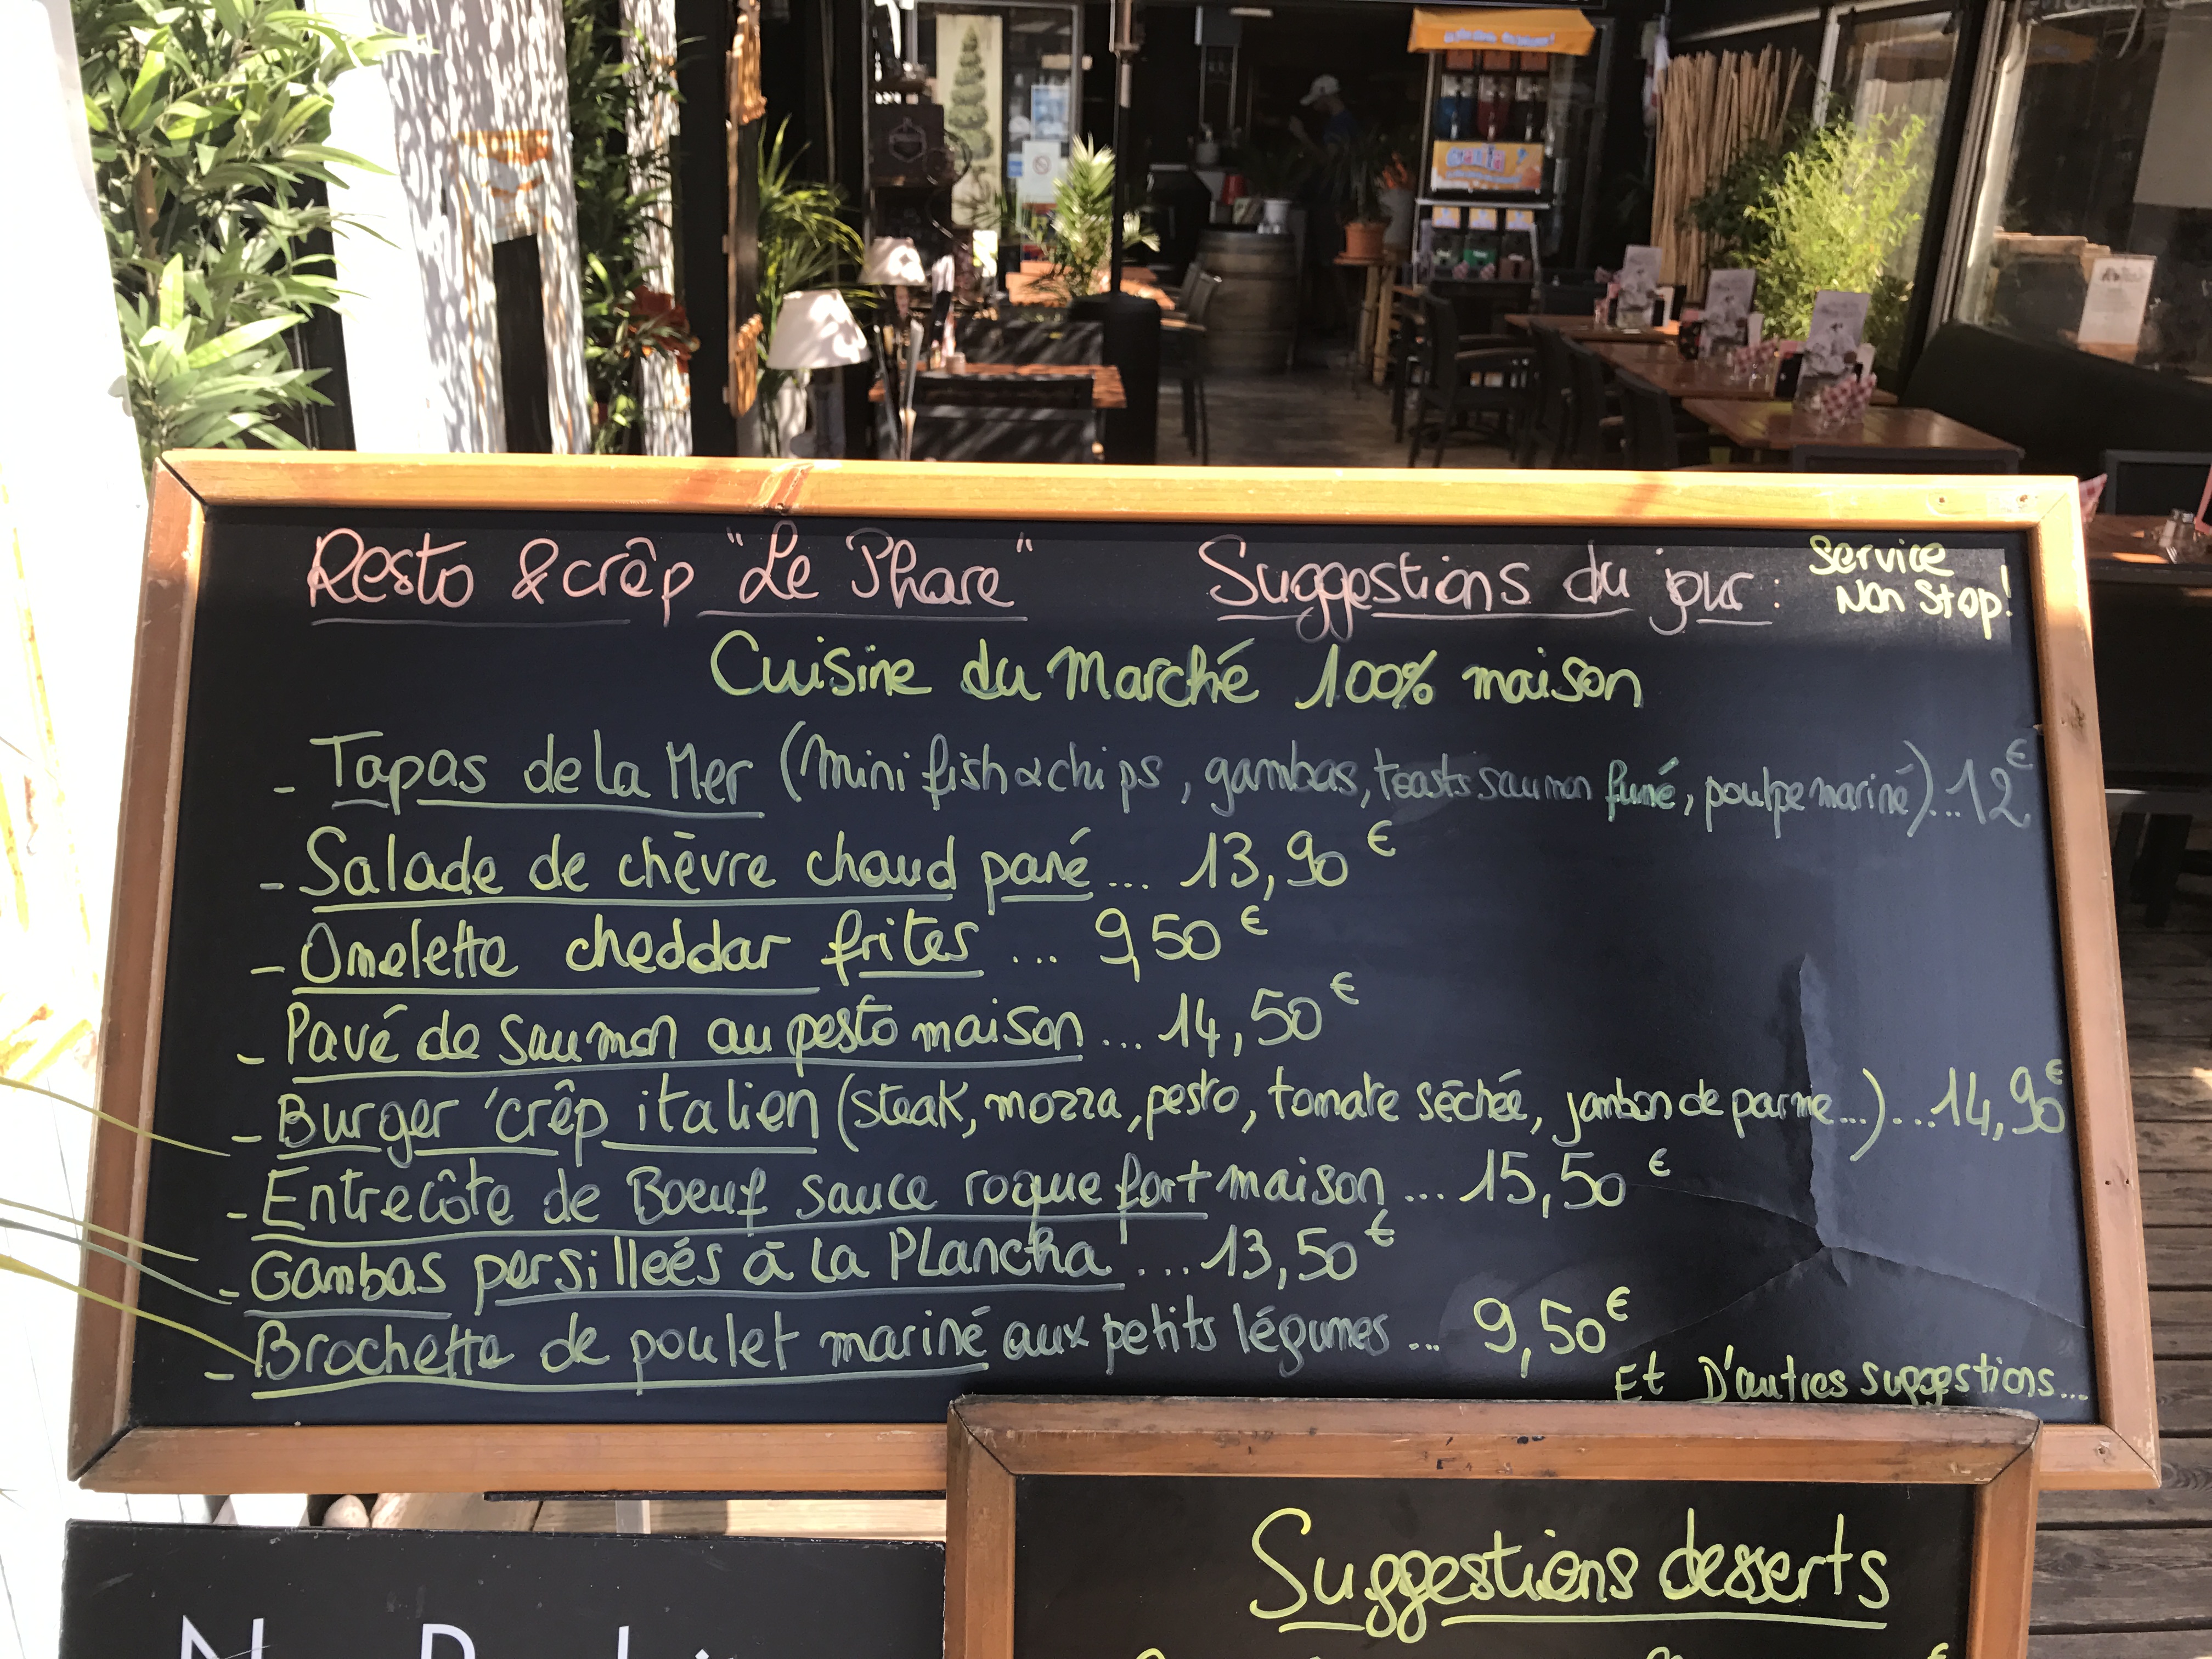 Resto & crêp "Le Phare"
Suggestions du jour :
Service
Non Stop!
Cuisine du Marché 100% maison
- Tapas de la Mer (mini fish & chips, gambas, toasts saumon fumé, poulpe mariné)...12€
- Salade de chèvre chaud pané ... 13,90€
- Omelette cheddar frites ... 9,50€
- Pavé de saumon au pesto maison ... 14,50€
- Burger 'crêp italien (steak, mozza, pesto, tomate séchée, jambon de parme...)...14,90€
- Entrecôte de Boeuf sauce roquefort maison ... 15,50€
- Gambas persilleés à la Plancha ... 13,50€
- Brochette de poulet mariné aux petits légumes ... 9,50€
Et D'autres suggestions...
Suggestions desserts